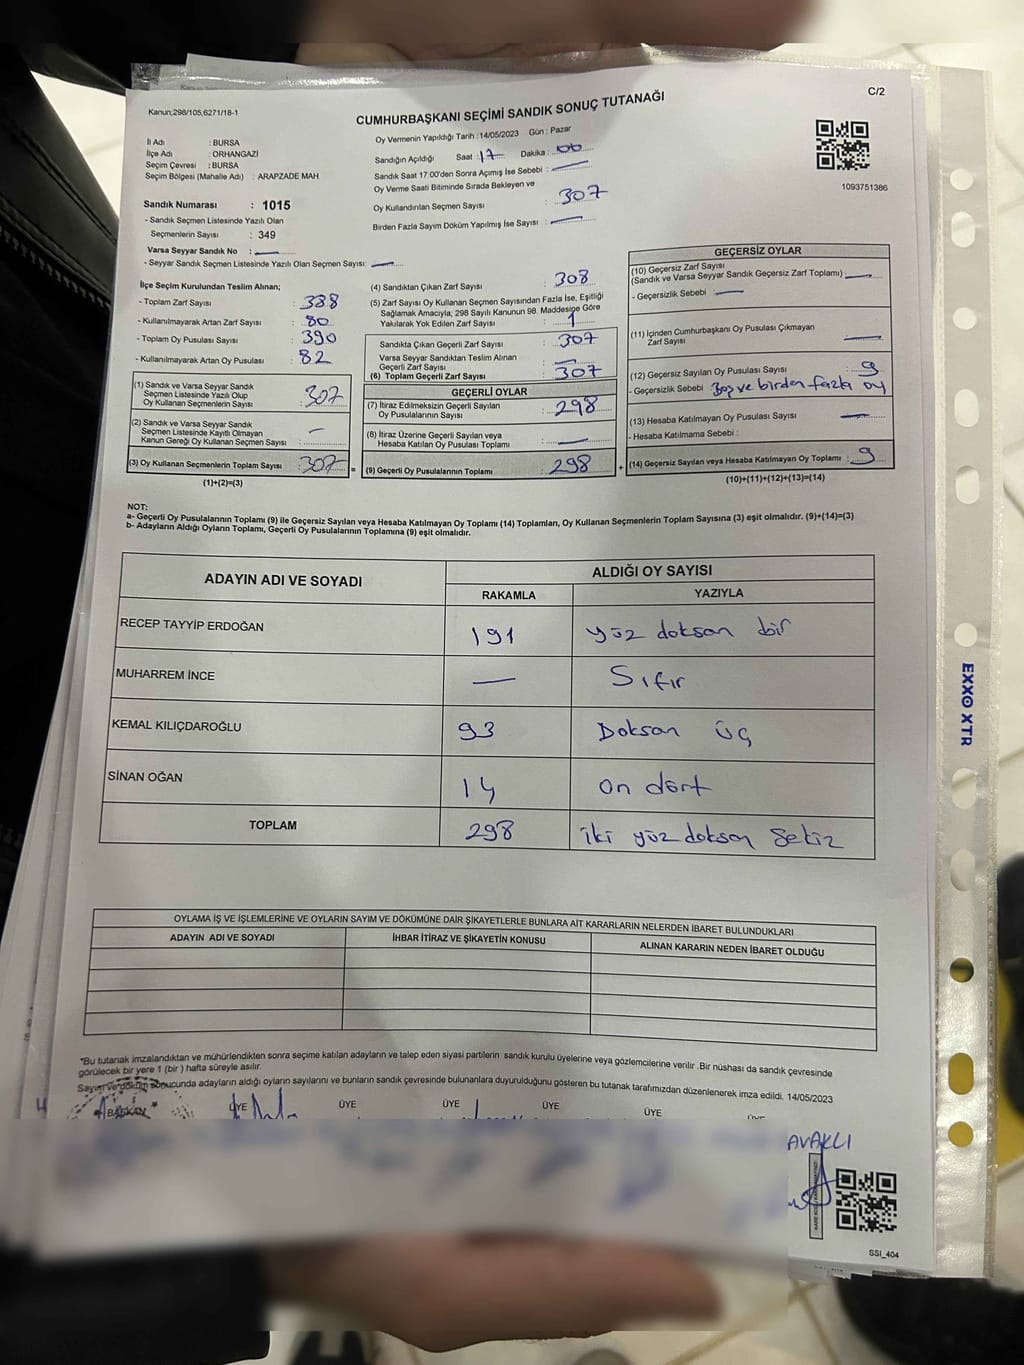 C/2
Kanun;298/105,6271/18-1
CUMHURBAŞKANI SEÇİMİ SANDIK SONUÇ TUTANAĞI
İl Adı : BURSA
İlçe Adı : ORHANGAZİ
Seçim Çevresi : BURSA
Seçim Bölgesi (Mahalle Adı) : ARAPZADE MAH.
Oy Vermenin Yapıldığı Tarih : 14/05/2023 Gün : Pazar
Sandığın Açıldığı Saat : 17 Dakika : 00
Sandık Saat 17:00'den Sonra Açımış İse Sebebi : —
Oy Verme Saati Bitiminde Sırada Bekleyen ve
Oy Kullandırılan Seçmen Sayısı : 307
Birden Fazla Sayım Döküm Yapılmış İse Sayısı : —
1093751386
Sandık Numarası : 1015
- Sandık Seçmen Listesinde Yazılı Olan
Seçmenlerin Sayısı : 349
Varsa Seyyar Sandık No : —
- Seyyar Sandık Seçmen Listesinde Yazılı Olan Seçmen Sayısı: —
İlçe Seçim Kurulundan Teslim Alınan;
- Toplam Zarf Sayısı : 388
- Kullanılmayarak Artan Zarf Sayısı : 80
- Toplam Oy Pusulası Sayısı : 390
- Kullanılmayarak Artan Oy Pusulası : 82
(1) Sandık ve Varsa Seyyar Sandık
Seçmen Listesinde Yazılı Olup
Oy Kullanan Seçmenlerin Sayısı : 307
(2) Sandık ve Varsa Seyyar Sandık
Seçmen Listesinde Kayıtlı Olmayan
Kanun Gereği Oy Kullanan Seçmen Sayısı : —
(3) Oy Kullanan Seçmenlerin Toplam Sayısı : 307 =
(1)+(2)=(3)
(4) Sandıktan Çıkan Zarf Sayısı : 308
(5) Zarf Sayısı Oy Kullanan Seçmen Sayısından Fazla İse, Eşitliği
Sağlamak Amacıyla, 298 Sayılı Kanunun 98. Maddesine Göre
Yakılarak Yok Edilen Zarf Sayısı : 1
Sandıkta Çıkan Geçerli Zarf Sayısı : 307
Varsa Seyyar Sandıktan Teslim Alınan
Geçerli Zarf Sayısı : —
(6) Toplam Geçerli Zarf Sayısı : 307
GEÇERLİ OYLAR
(7) İtiraz Edilmeksizin Geçerli Sayılan
Oy Pusulalarının Sayısı : 298
(8) İtiraz Üzerine Geçerli Sayılan veya
Hesaba Katılan Oy Pusulası Toplamı : —
(9) Geçerli Oy Pusulalarının Toplamı : 298 +
GEÇERSİZ OYLAR
(10) Geçersiz Zarf Sayısı
(Sandık ve Varsa Seyyar Sandık Geçersiz Zarf Toplamı) —
- Geçersizlik Sebebi : —
(11) İçinden Cumhurbaşkanı Oy Pusulası Çıkmayan
Zarf Sayısı : —
(12) Geçersiz Sayılan Oy Pusulası Sayısı : 9
- Geçersizlik Sebebi Boş ve birden fazla oy
(13) Hesaba Katılmayan Oy Pusulası Sayısı : —
- Hesaba Katılmama Sebebi :
(14) Geçersiz Sayılan veya Hesaba Katılmayan Oy Toplamı : 9
(10)+(11)+(12)+(13)=(14)
NOT:
a- Geçerli Oy Pusulalarının Toplamı (9) ile Geçersiz Sayılan veya Hesaba Katılmayan Oy Toplamı (14) Toplamları, Oy Kullanan Seçmenlerin Toplam Sayısına (3) eşit olmalıdır. (9)+(14)=(3)
b- Adayların Aldığı Oyların Toplamı, Geçerli Oy Pusulalarının Toplamına (9) eşit olmalıdır.
ADAYIN ADI VE SOYADI ALDIĞI OY SAYISI
RAKAMLA YAZIYLA
RECEP TAYYİP ERDOĞAN 191 yüz doksan bir
MUHARREM İNCE — Sıfır
KEMAL KILIÇDAROĞLU 93 Doksan üç
SİNAN OĞAN 14 on dört
TOPLAM 298 iki yüz doksan sekiz
OYLAMA İŞ VE İŞLEMLERİNE VE OYLARIN SAYIM VE DÖKÜMÜNE DAİR ŞİKAYETLERLE BUNLARA AİT KARARLARIN NELERDEN İBARET BULUNDUKLARI
ADAYIN ADI VE SOYADI İHBAR İTİRAZ VE ŞİKAYETİN KONUSU ALINAN KARARIN NEDEN İBARET OLDUĞU
*Bu tutanak imzalandıktan ve mühürlendikten sonra seçime katılan adayların ve talep eden siyasi partilerin sandık kurulu üyelerine veya gözlemcilerine verilir .Bir nüshası da sandık çevresinde
görülecek bir yere 1 (bir ) hafta süreyle asılır.
Sayım ve döküm sonucunda adayların aldığı oyların sayılarını ve bunların sandık çevresinde bulunanlara duyurulduğunu gösteren bu tutanak tarafımızdan düzenlenerek imza edildi. 14/05/2023
BAŞKAN ÜYE ÜYE ÜYE ÜYE ÜYE ÜYE
AVAKLI
SSI_404
EXXO XTR